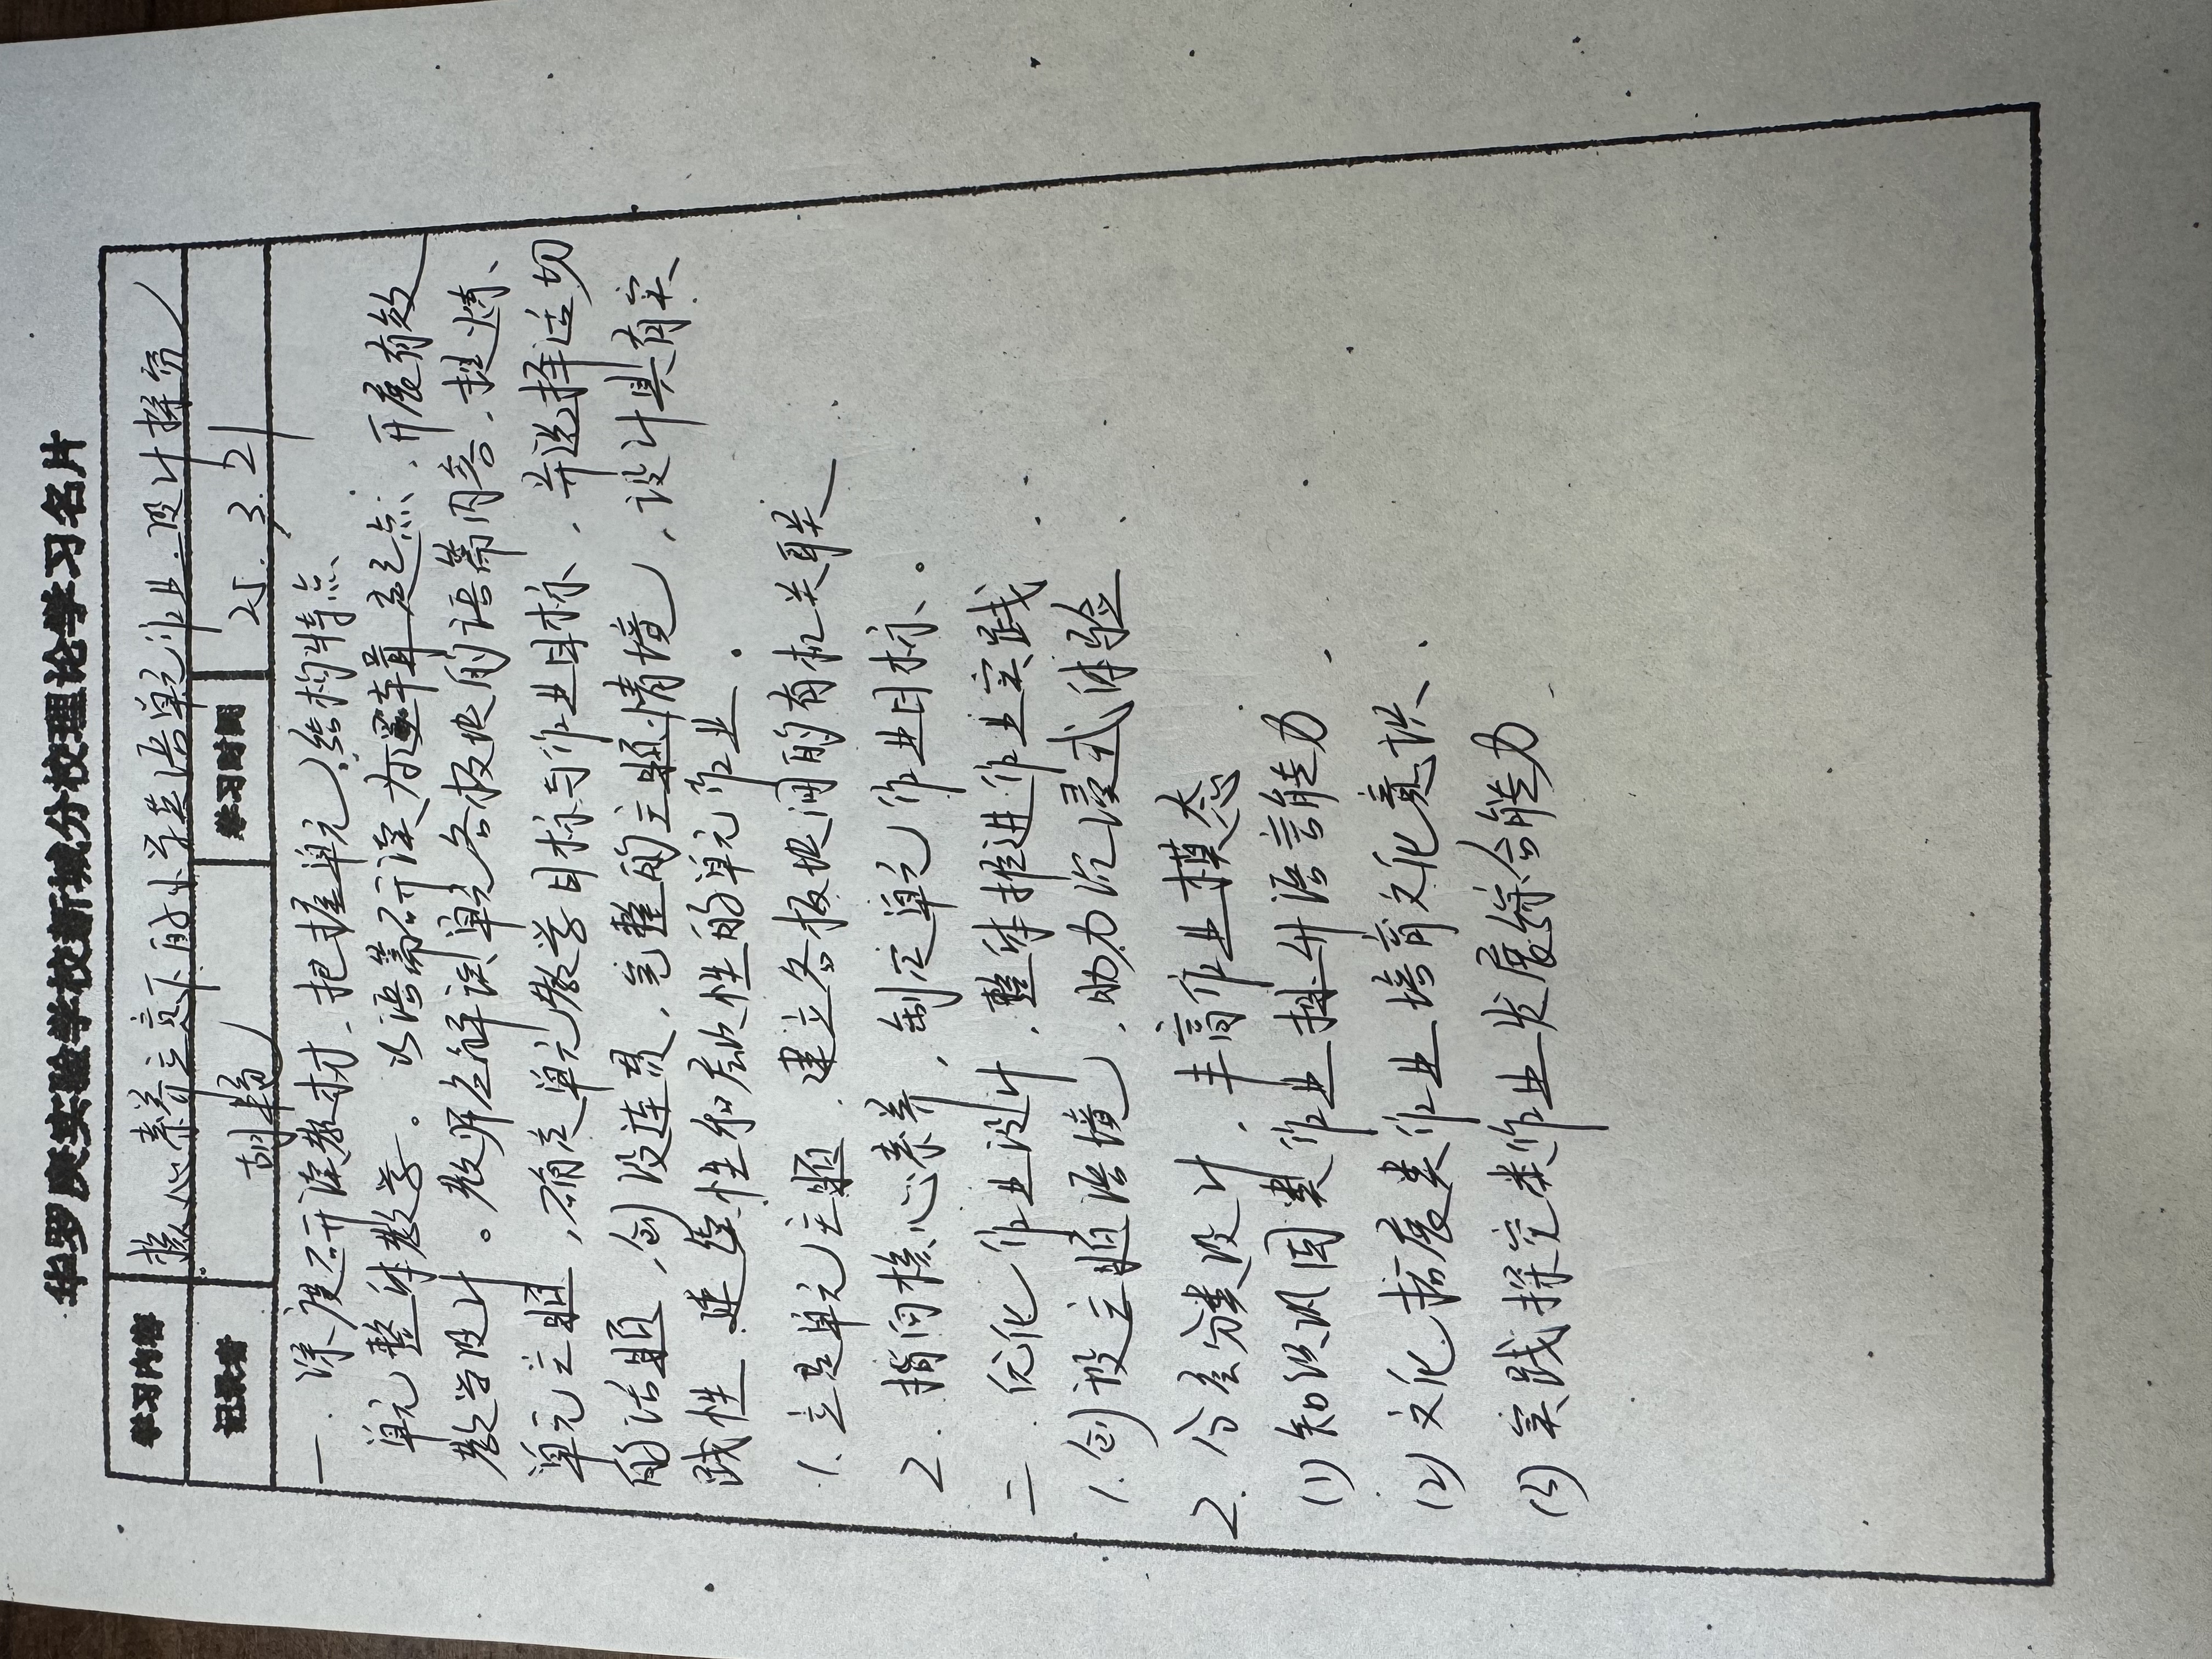 华罗庚实验学校新城分校理论学习名片
学习内容 核心素养立意下的小学英语单元作业设计探究
记录者 胡翰 学习时间 25.3.21
一. 深度研读教材, 把握单元结构特点
单元整体教学。以语篇研读为逻辑起点, 开展有效
教学设计。教师在解读单元各板块的语篇内容, 提炼
单元主题, 确定单元教学目标与作业目标, 并选择适切
的话题, 创设连贯, 完整的主题情境, 设计具有实
践性 延续性和层次性的单元作业.
1. 立足单元主题 建立各板块间的有机关联
2. 指向核心素养, 制定单元作业目标。
二. 优化作业设计, 整体推进作业实践
1. 创设主题语境, 助力沉浸式体验
2. 分层分类设计, 丰富作业模态
(1) 知识巩固类作业提升语言能力
(2) 文化拓展类作业培育文化意识
(3) 实践探究类作业发展综合能力